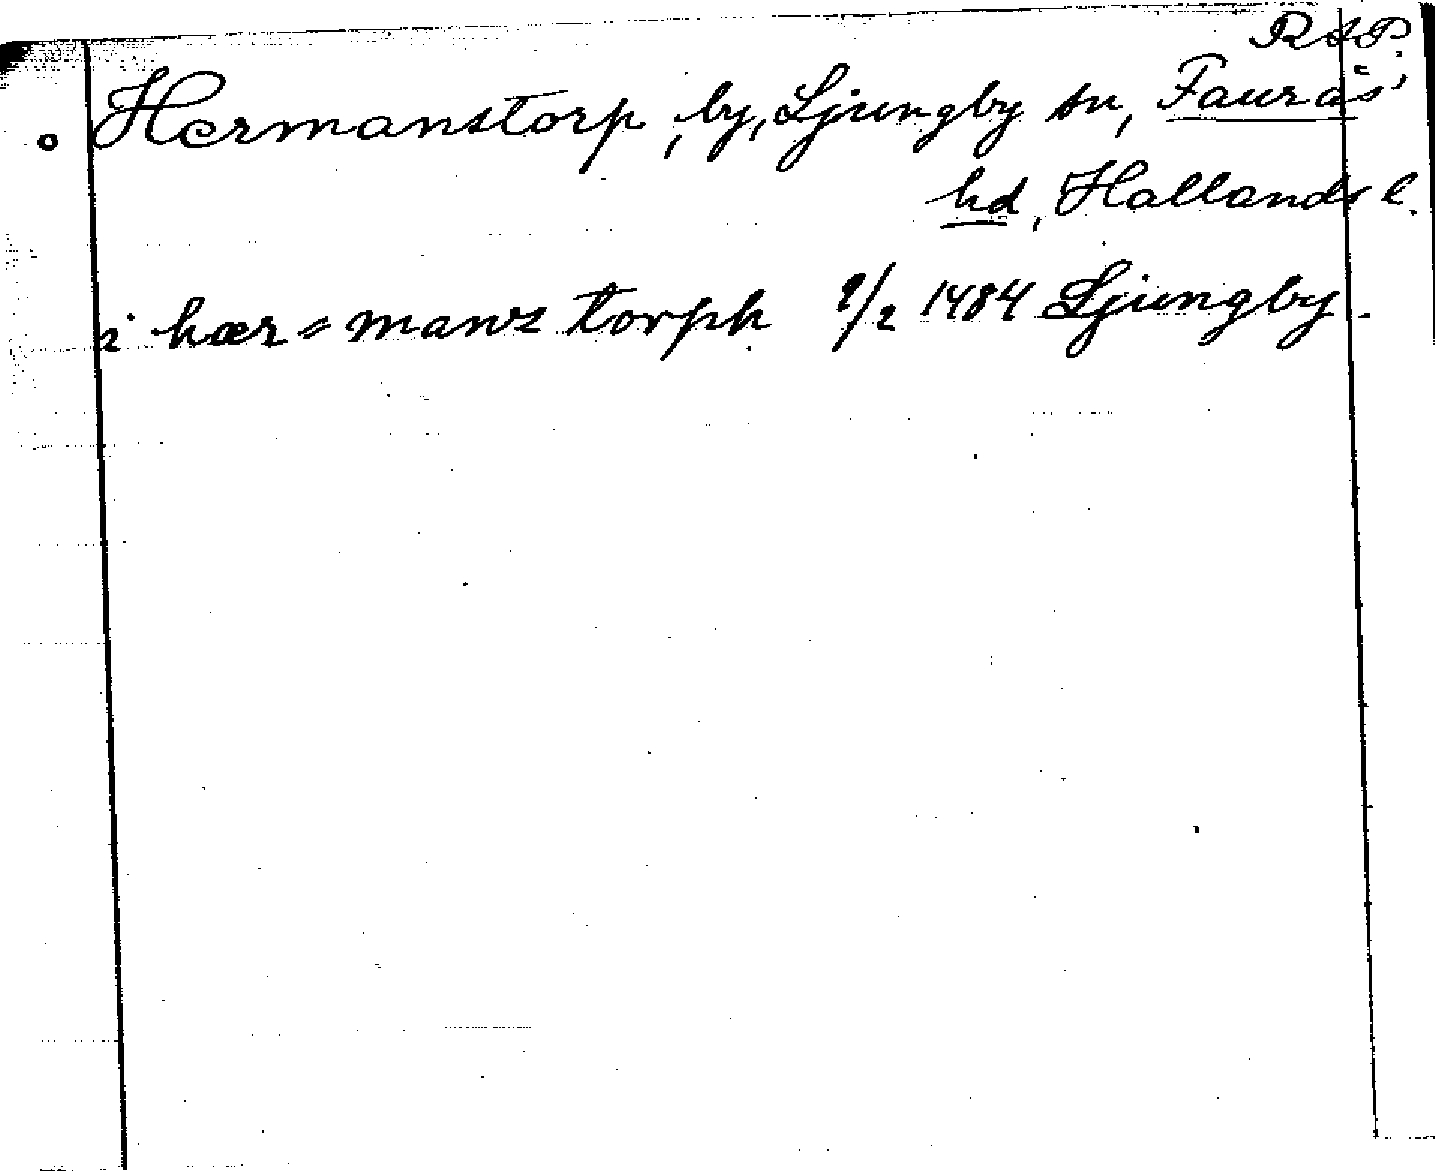 RAP.
o Hermanstorp, by, Ljungby sn, Faurås
hd, Hallands l.
i hær=manz torph 9/2 1484 Ljungby.